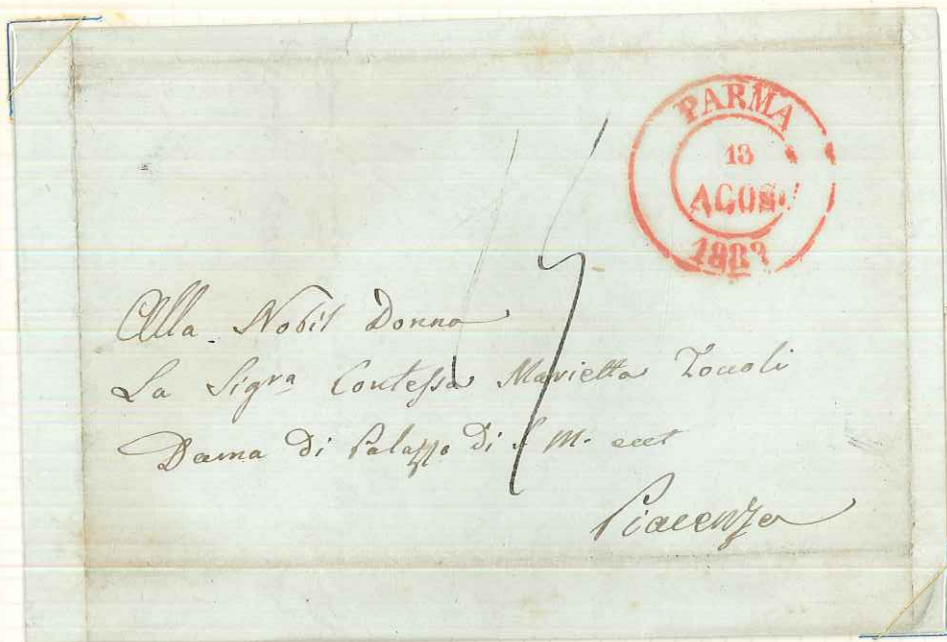 PARMA
13
AGOS
Alla Nobil Donna
La Sigra Contessa Marietta Tocoli
Dama di Palazzo di S. M. ecct
Piacenza